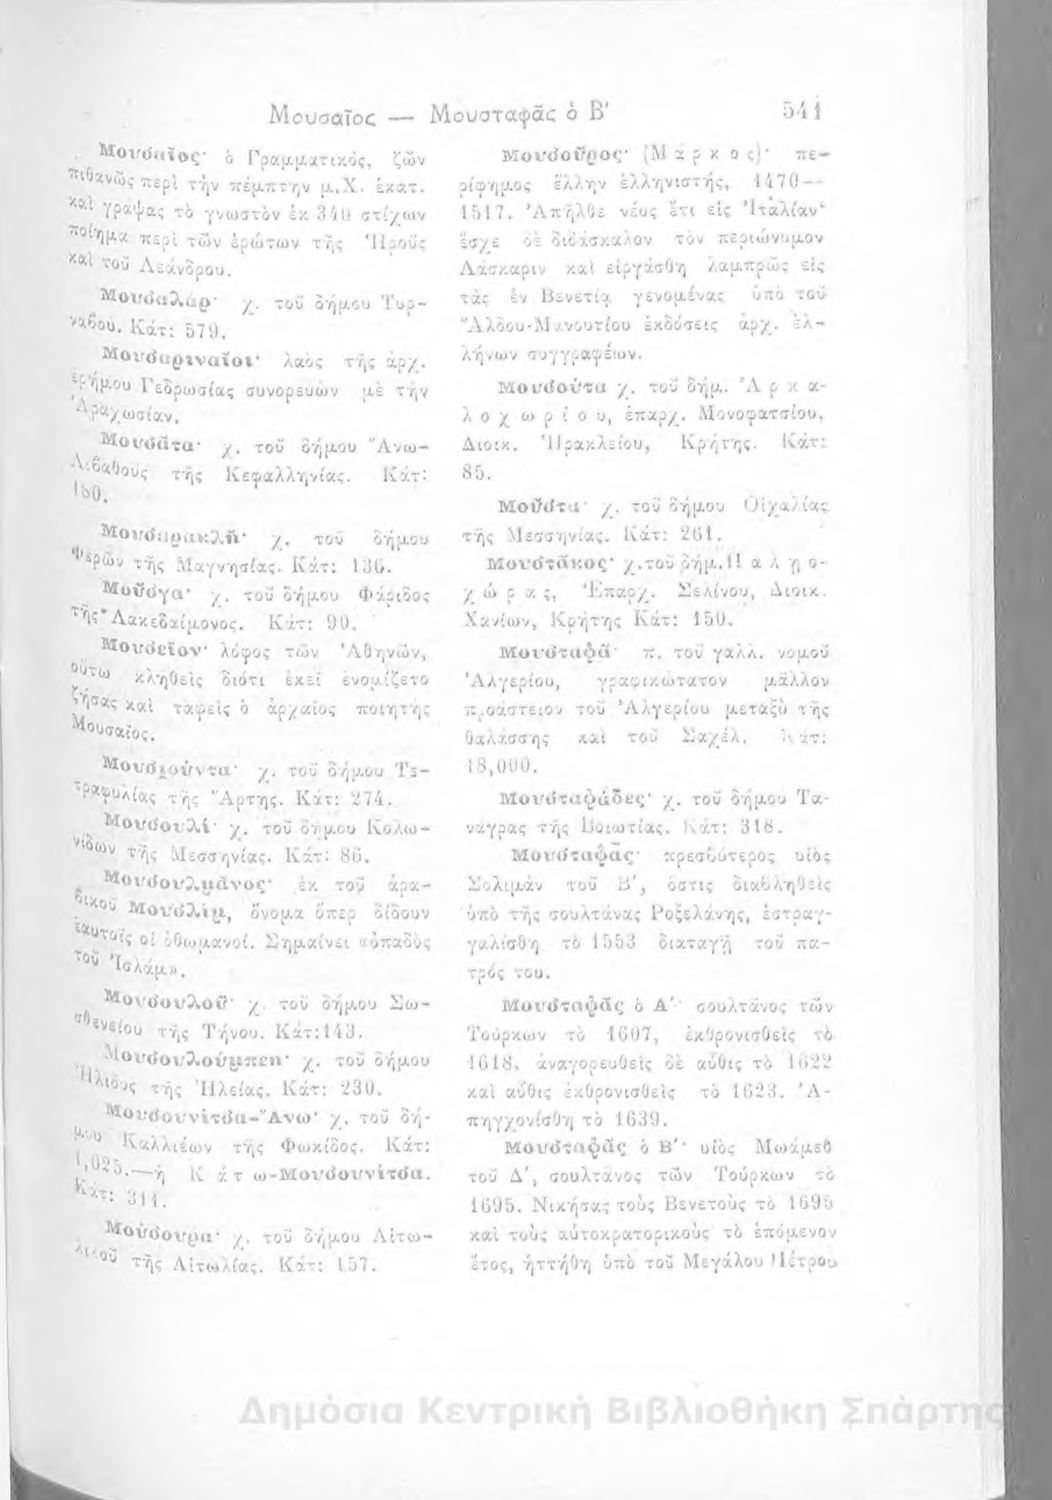 Μουσαῖος — Μουσταφᾶς ὁ Β΄ 541
Μουσαῖος· ὁ Γραμματικός, ζῶν
πιθανῶς περὶ τὴν πέμπτην μ.Χ. ἑκατ.
καὶ γράψας τὸ γνωστὸν ἐκ 340 στίχων
ποίημα περὶ τῶν ἐρώτων τῆς Ἡροῦς
καὶ τοῦ Λεάνδρου.
Μουσαλάρ· χ. τοῦ δήμου Τυρ-
νάβου. Κάτ: 579.
Μουσαριναῖοι· λαὸς τῆς ἀρχ.
ἐρήμου Γεδρωσίας συνορεύων μὲ τὴν
Ἀραχωσίαν.
Μουσᾶτα· χ. τοῦ δήμου Ἄνω-
Λιβαθοῦς τῆς Κεφαλληνίας. Κάτ:
180.
Μουσαρακλῆ· χ. τοῦ δήμου
Φερῶν τῆς Μαγνησίας. Κάτ: 136.
Μοῦσγα· χ. τοῦ δήμου Φάριδος
τῆς Λακεδαίμονος. Κάτ: 90.
Μουσεῖον· λόφος τῶν Ἀθηνῶν,
οὕτω κληθεὶς διότι ἐκεῖ ἐνομίζετο
ζήσας καὶ ταφεὶς ὁ ἀρχαῖος ποιητὴς
Μουσαῖος.
Μουσιούντα· χ. τοῦ δήμου Τε-
τραφυλίας τῆς Ἄρτης. Κάτ: 274.
Μουσουλί· χ. τοῦ δήμου Κολω-
νίδων τῆς Μεσσηνίας. Κάτ: 86.
Μουσουλμάνος· ἐκ τοῦ ἀρα-
βικοῦ Μουσλίμ, ὄνομα ὅπερ δίδουν
ἑαυτοῖς οἱ ὀθωμανοί. Σημαίνει «ὀπαδὸς
τοῦ Ἰσλάμ».
Μουσουλοῦ· χ. τοῦ δήμου Σω-
σθενείου τῆς Τήνου. Κάτ:143.
Μουσουλούμπεη· χ. τοῦ δήμου
Ἤλιδος τῆς Ἠλείας. Κάτ: 230.
Μουσουνίτσα-Ἄνω· χ. τοῦ δή-
μου Καλλιέων τῆς Φωκίδος. Κάτ:
1,025.—ἡ Κάτω-Μουσουνίτσα.
Κάτ: 314.
Μούσουρα· χ. τοῦ δήμου Αἰτω-
λικοῦ τῆς Αἰτωλίας. Κάτ: 157.
Μουσοῦρος· (Μάρκος)· πε-
ρίφημος ἕλλην ἑλληνιστής, 1470—
1517. Ἀπῆλθε νέος ἔτι εἰς Ἰταλίαν·
ἔσχε δὲ διδάσκαλον τὸν περιώνυμον
Λάσκαριν καὶ εἰργάσθη λαμπρῶς εἰς
τὰς ἐν Βενετίᾳ γενομένας ὑπὸ τοῦ
Ἄλδου-Μανουτίου ἐκδόσεις ἀρχ. ἑλ-
λήνων συγγραφέων.
Μουσούτα χ. τοῦ δήμ. Ἀρκα-
λοχωρίου, ἐπαρχ. Μονοφατσίου,
Διοικ. Ἡρακλείου, Κρήτης. Κάτ:
85.
Μοῦστα· χ. τοῦ δήμου Οἰχαλίας
τῆς Μεσσηνίας. Κάτ: 261.
Μουστᾶκος· χ.τοῦ δήμ.Παληο-
χώρας, Ἐπαρχ. Σελίνου, Διοικ.
Χανίων, Κρήτης Κάτ: 150.
Μουσταφᾶ· π. τοῦ γαλλ. νομοῦ
Ἀλγερίου, γραφικώτατον μᾶλλον
προάστειον τοῦ Ἀλγερίου μεταξὺ τῆς
θαλάσσης καὶ τοῦ Σαχέλ. Κάτ:
18,000.
Μουσταφάδες· χ. τοῦ δήμου Τα-
νάγρας τῆς Βοιωτίας. Κάτ: 318.
Μουσταφᾶς· πρεσβύτερος υἱὸς
Σολιμὰν τοῦ Β΄, ὅστις διαβληθεὶς
ὑπὸ τῆς σουλτάνας Ροξελάνης, ἐστραγ-
γαλίσθη τὸ 1553 διαταγῇ τοῦ πα-
τρός του.
Μουσταφᾶς ὁ Α΄· σουλτάνος τῶν
Τούρκων τὸ 1607, ἐκθρονισθεὶς τὸ
1618, ἀναγορευθεὶς δὲ αὖθις τὸ 1622
καὶ αὖθις ἐκθρονισθεὶς τὸ 1623. Ἀ-
πηγχονίσθη τὸ 1639.
Μουσταφᾶς ὁ Β΄· υἱὸς Μωάμεθ
τοῦ Δ΄, σουλτάνος τῶν Τούρκων τὸ
1695. Νικήσας τοὺς Βενετοὺς τὸ 1695
καὶ τοὺς αὐτοκρατορικοὺς τὸ ἑπόμενον
ἔτος, ἡττήθη ὑπὸ τοῦ Μεγάλου Πέτρου
Δημόσια Κεντρική Βιβλιοθήκη Σπάρτης